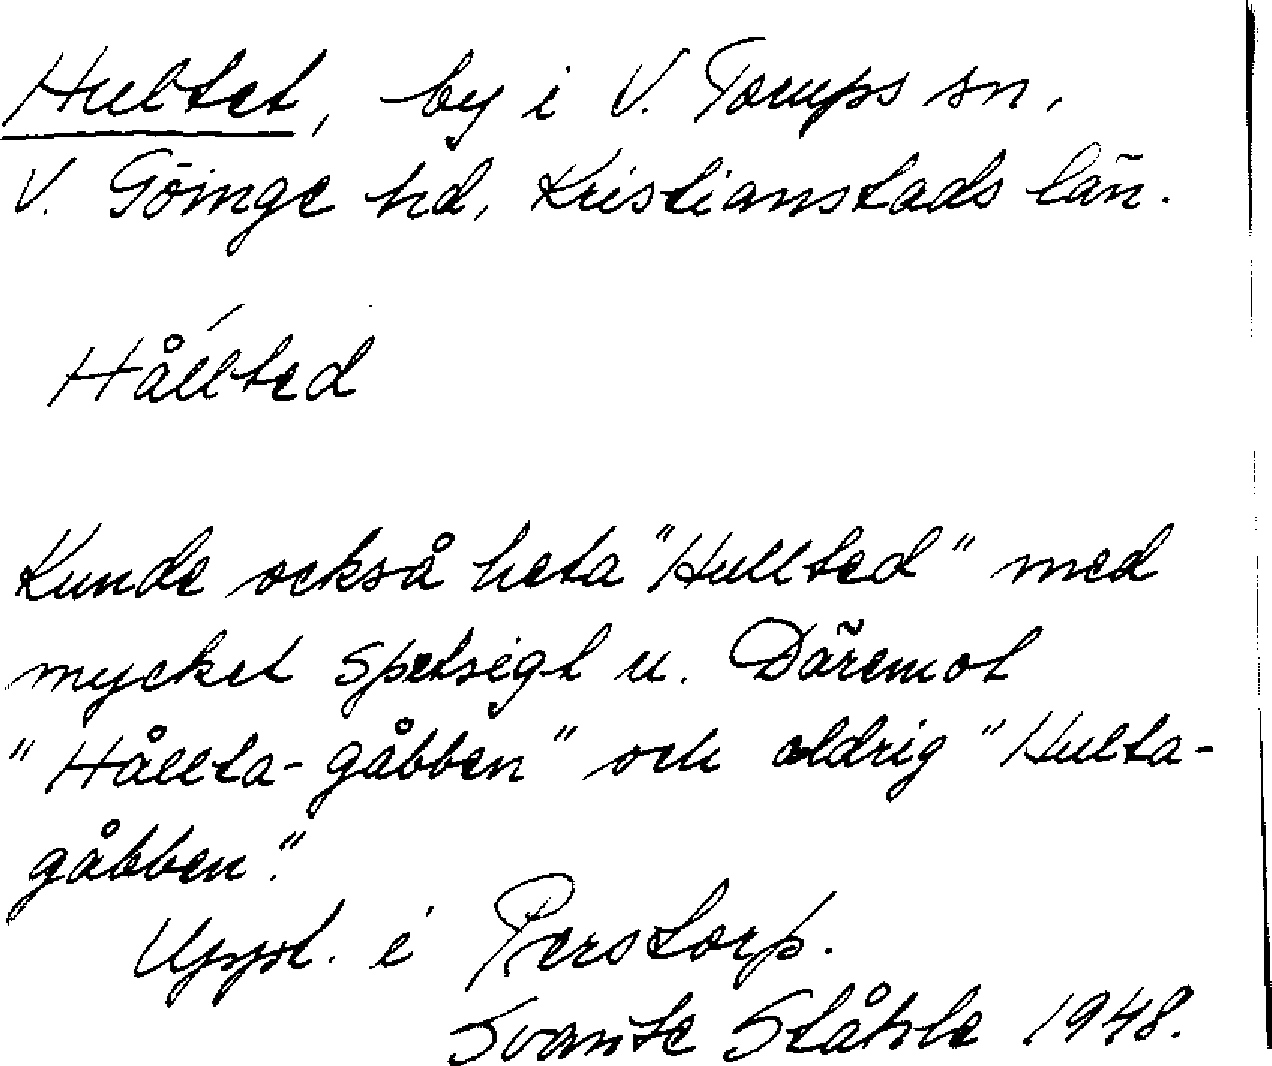 Hultet, by i V. Torups sn,
V. Göinge hd, Kristianstads län.
Hållted
Kunde också heta "Hullted" med
mycket spetsigt u. Däremot
"Hållta-gåbben" och aldrig "Hulta-
gåbben".
Uppt. i Perstorp.
Svante Ståhle 1948.